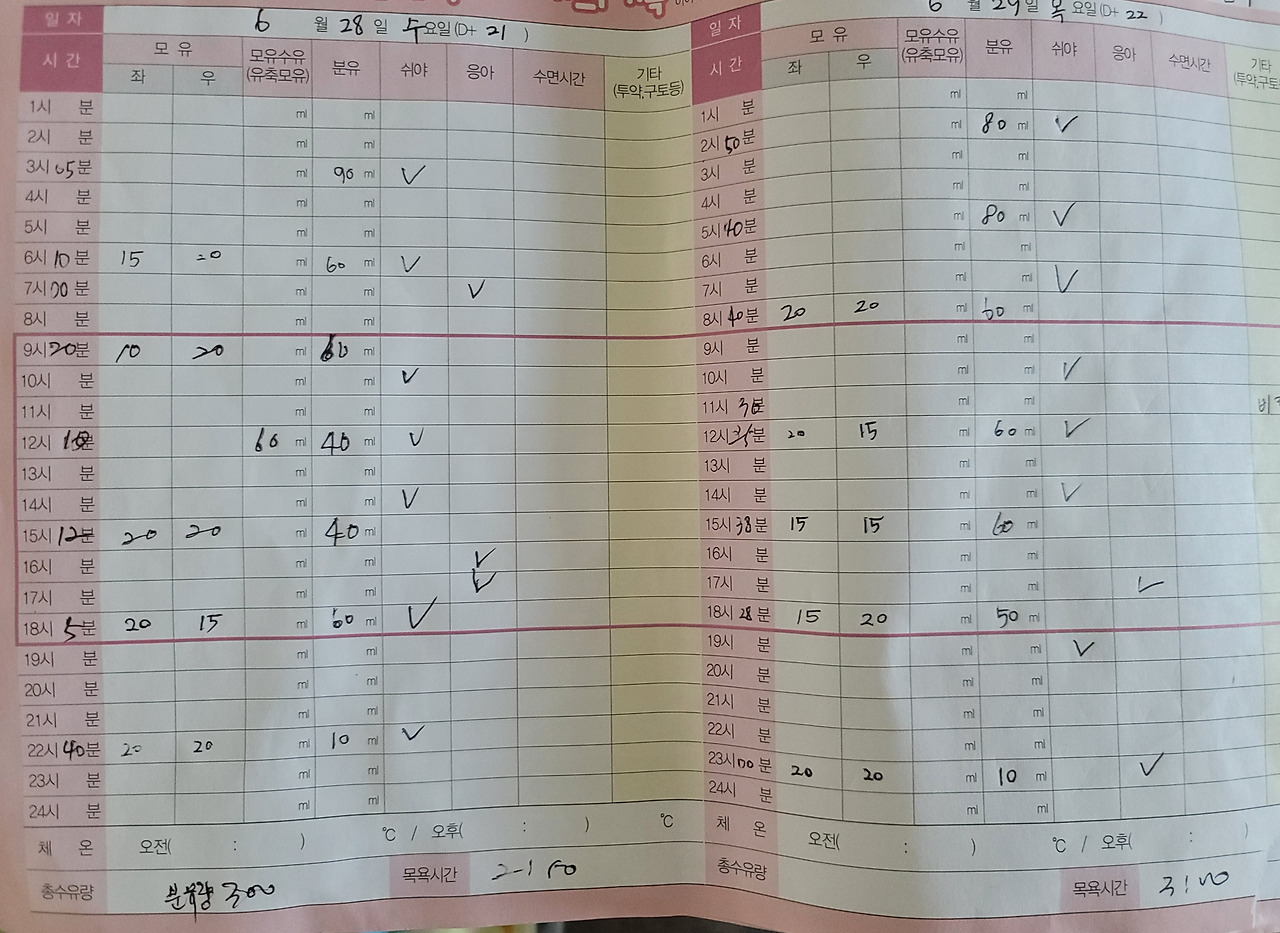 일 자 6 월 28 일 수 요일(D+ 21 )
시 간 모 유 모유수유 (유축모유) 분유 쉬야 응아 수면시간 기타 (투약,구토등)
좌 우
1시 분 ml ml
2시 분 ml ml
3시 05분 ml 90 ml ✓
4시 분 ml ml
5시 분 ml ml
6시 10분 15 20 ml 60 ml ✓
7시 00분 ml ml ✓
8시 분 ml ml
9시 20분 10 20 ml 60 ml
10시 분 ml ml ✓
11시 분 ml ml
12시 분 60 ml 40 ml ✓
13시 분 ml ml
14시 분 ml ml ✓
15시 12분 20 20 ml 40 ml
16시 분 ml ml ✓
17시 분 ml ml ✓
18시 5분 20 15 ml 60 ml ✓
19시 분 ml ml
20시 분 ml ml
21시 분 ml ml
22시 40분 20 20 ml 10 ml ✓
23시 분 ml ml
24시 분 ml ml
체 온 오전( : ) ℃ / 오후( : ) ℃
총수유량 분유량 300 목욕시간
일 자 6 월 29 일 목 요일(D+ 22 )
시 간 모 유 모유수유 (유축모유) 분유 쉬야 응아 수면시간 기타
좌 우 (투약,구토
1시 분 ml ml
2시 50분 ml 80 ml ✓
3시 분 ml ml
4시 분 ml ml
5시 40분 ml 80 ml ✓
6시 분 ml ml
7시 분 ml ml ✓
8시 40분 20 20 ml 60 ml
9시 분 ml ml
10시 분 ml ml ✓
11시 30분 ml ml
12시 분 20 15 ml 60 ml ✓
13시 분 ml ml
14시 분 ml ml ✓
15시 38분 15 15 ml 60 ml
16시 분 ml ml
17시 분 ml ml ✓
18시 28분 15 20 ml 50 ml
19시 분 ml ml ✓
20시 분 ml ml
21시 분 ml ml
22시 분 ml ml
23시 00분 20 20 ml 10 ml ✓
24시 분 ml ml
체 온 오전( : ) ℃ / 오후( : )
총수유량 목욕시간 3:00